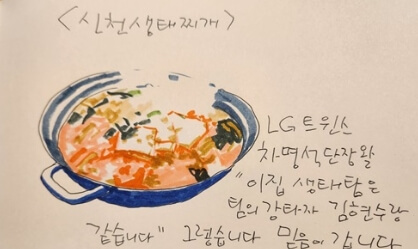 <신천생태찌개>
LG트윈스
차명석단장왈
"이집 생태탕은
팀의 강타자 김현수랑
같습니다" 그렇습니다 믿음이 갑니다